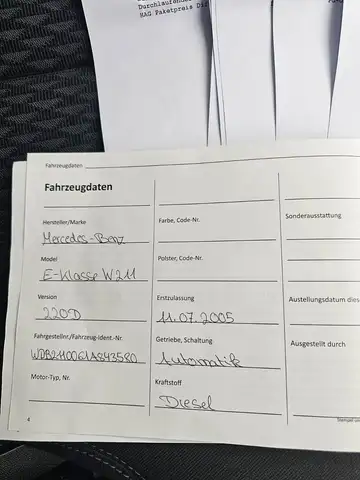 Durchlaufende
HAG Paketpreis Di
Fahrzeugdaten
Fahrzeugdaten
Hersteller/Marke
Mercedes-Benz
Model
E-Klasse W211
Version
220D
Fahrgestellnr./Fahrzeug-Ident.-Nr.
WDB2110061A843580
Motor-Typ, Nr.
Farbe, Code-Nr.
Polster, Code-Nr.
Erstzulassung
11.07.2005
Getriebe, Schaltung
Automatik
Kraftstoff
Diesel
Sonderausstattung
Austellungsdatum dies
Ausgestellt durch
4
Stempel un